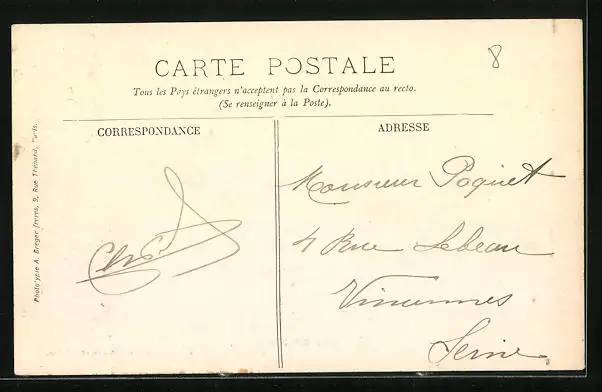 8
CARTE POSTALE
Tous les Pays étrangers n'acceptent pas la Correspondance au recto.
(Se renseigner à la Poste).
CORRESPONDANCE
ADRESSE
Monsieur Poquet
4 Rue Lebeau
Vincennes
Seine
Phototypie A. Breger frères, 9, Rue Thénard, Paris.